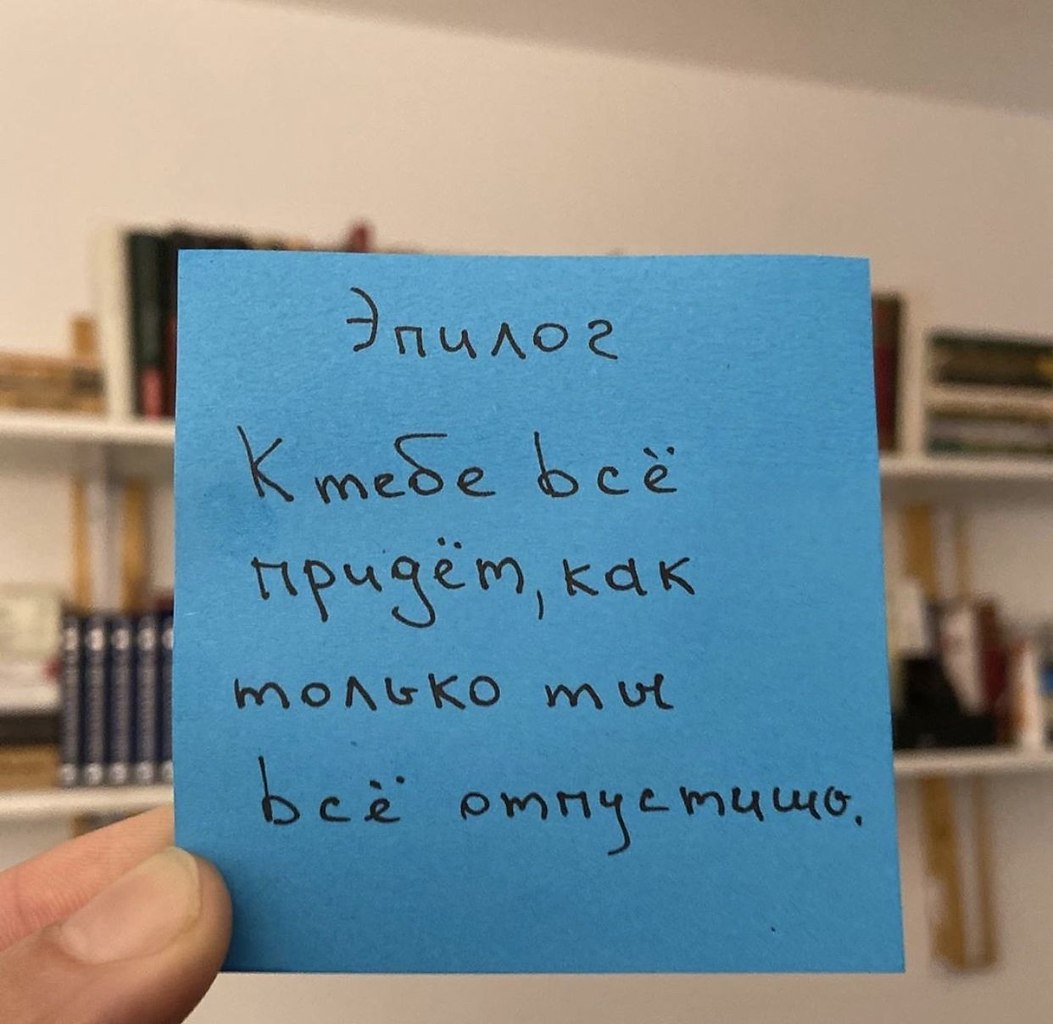 Эпилог
К тебе всё
придёт, как
только ты
всё отпустишь.